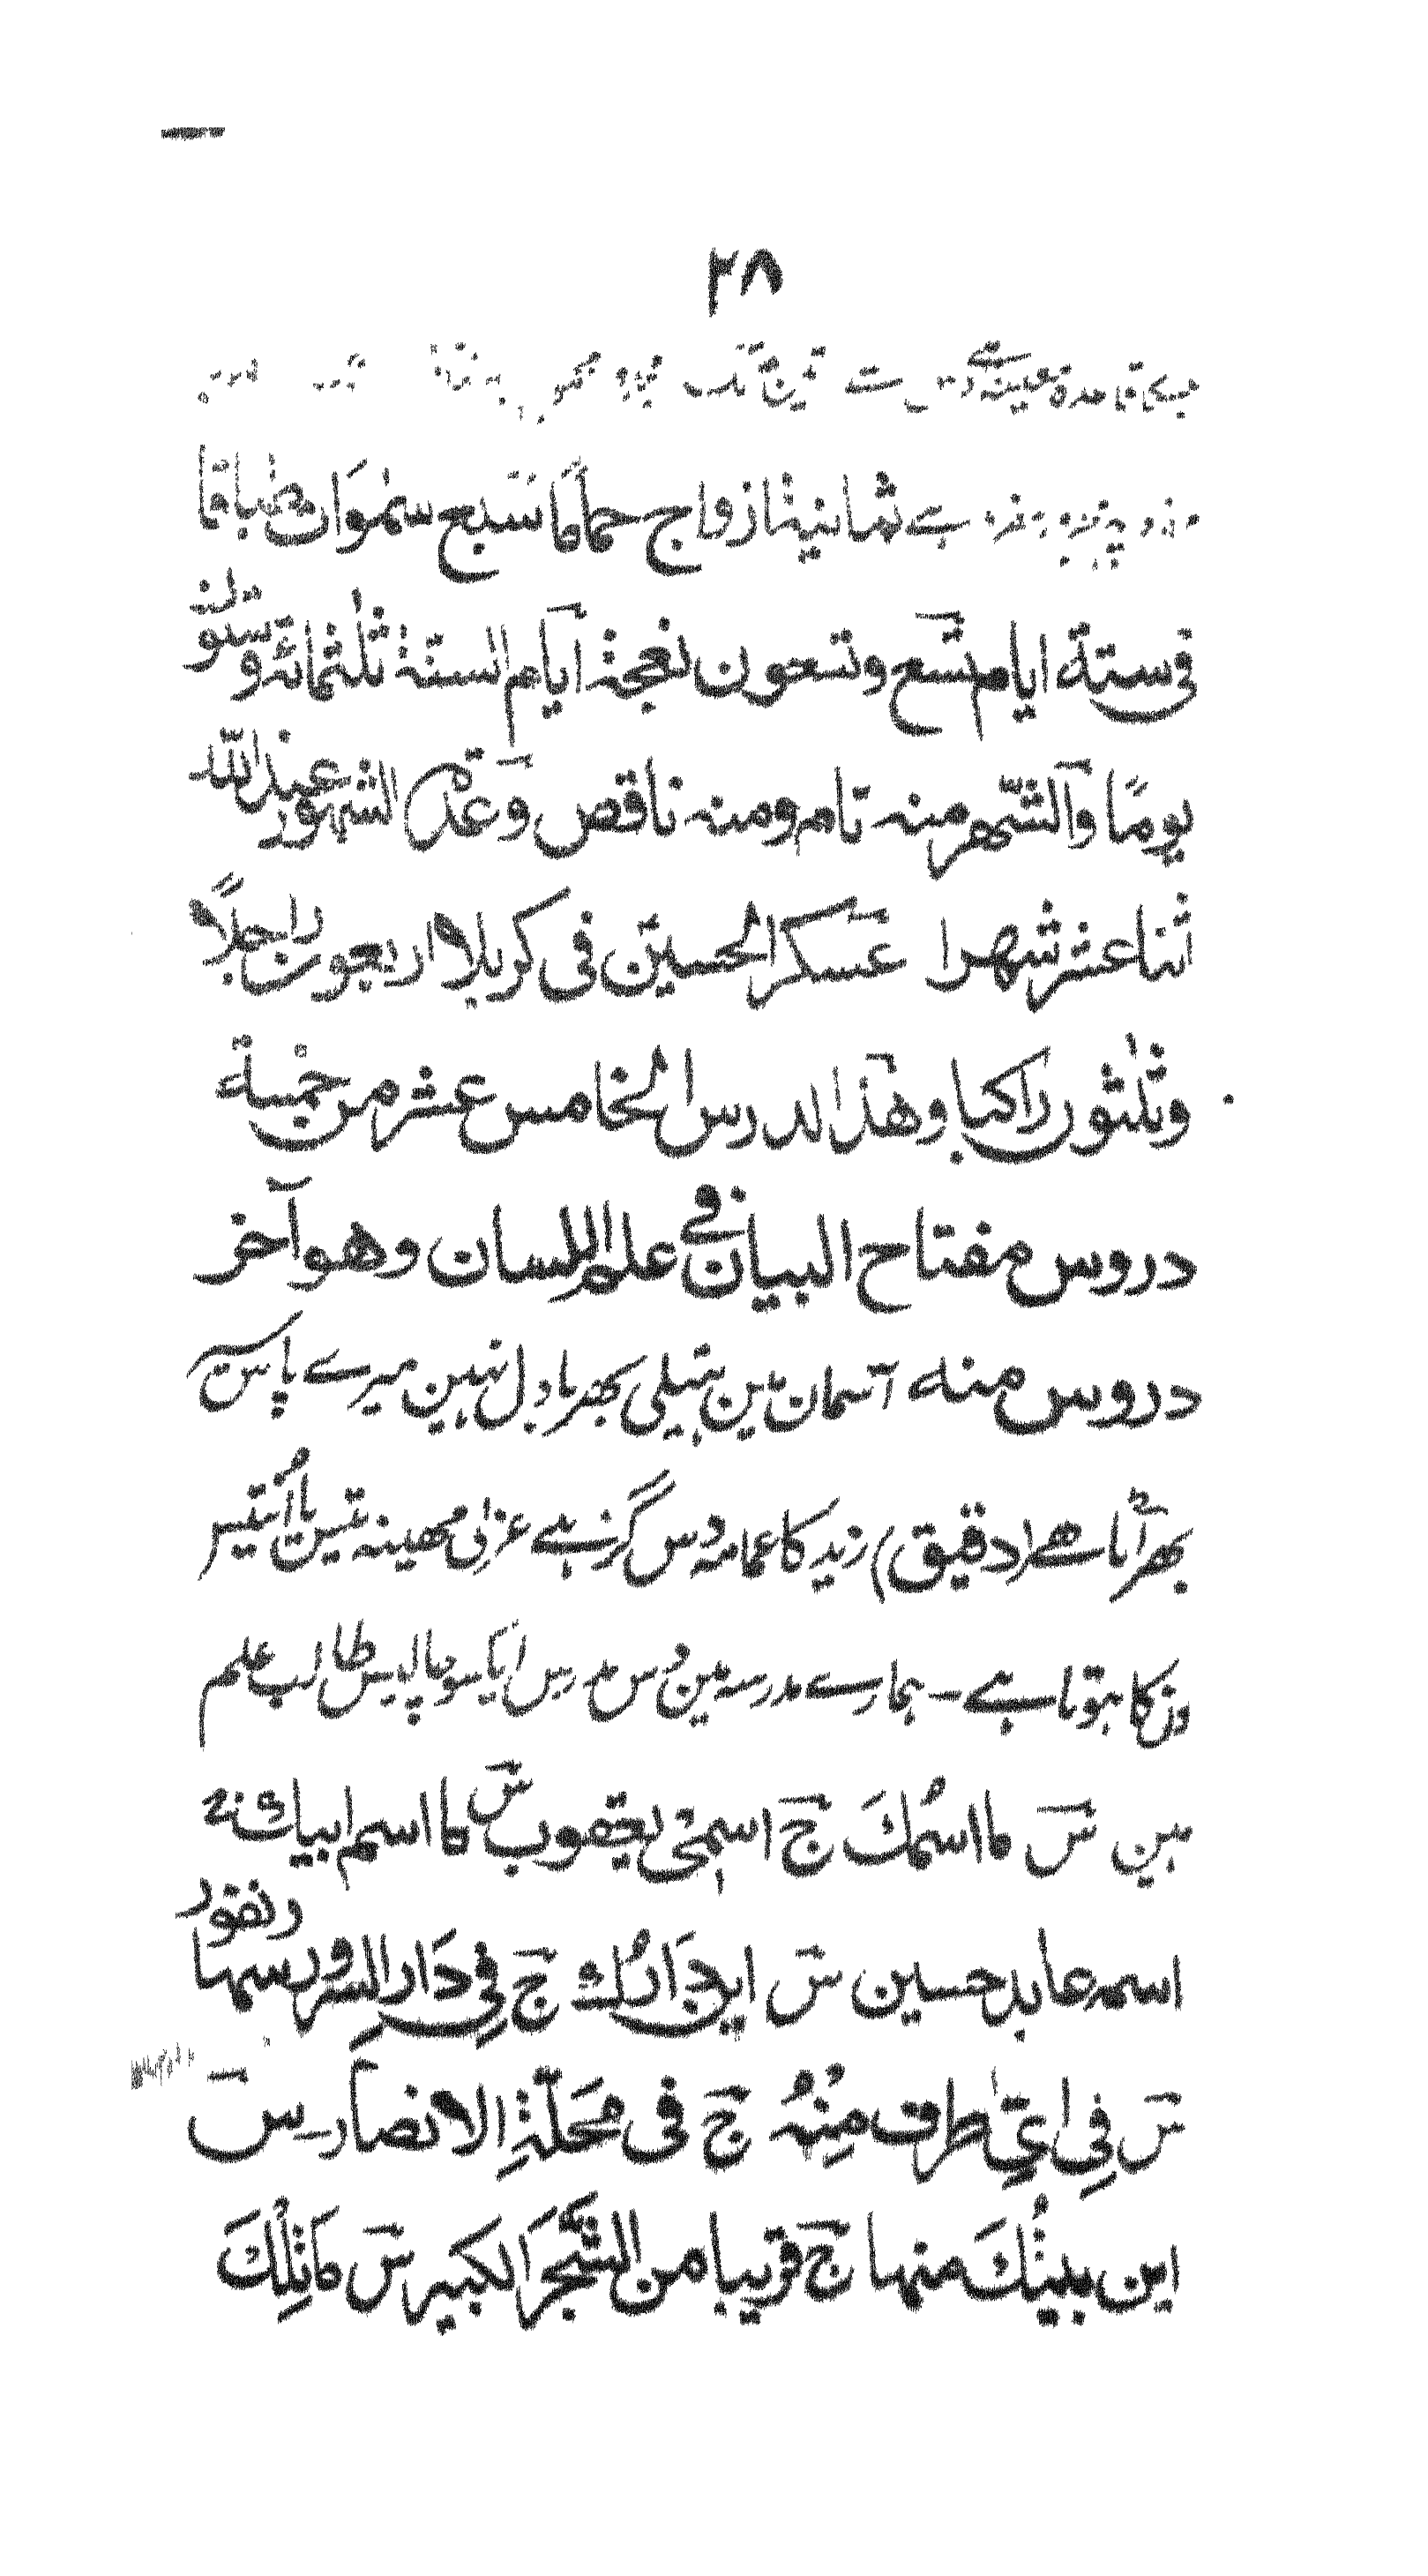 ٢٨
قاعدة معینہ سے
ہے ثمانیة ازواج حماکا سبع سمٰوات طباقا
فی ستة ایام تسع وتسعون نعجة ایام السنة ثلٰثمائة و ستون
یومًا والشهر منه تام ومنه ناقص وعدة الشهور عند الله
اثنا عشر شهرا عسکر الحسین فی کربلا اربعون راجلًا
وثلٰثون راکبا وهذا لدرس الخامس عشر من خمسة
دروس مفتاح البیان فی علم اللسان وهو آخر
دروس منه آسمان مین ہتیلی بھر بادل نہین میرے پاس سیر
بھر آٹا ھے (دقیق) زید کا عمامہ دس گز ہے عربی مھینہ تیس یا اُنتیس
دن کا ہوتا ہے - ہمارے مدرسہ مین دس مدرس ایک سو چالیس طالب علم
ہین سؔ ما اسمُكَ جؔ اسمِیْ یعقوب سؔ ما اسم ابیك
اسمه عابد حسین سؔ این دَارُك جؔ فِی دَارِ السرور سمها دنفور
سؔ فِی ایِّ طرف مِنْهُ جؔ فی مَحَلَّةِ الانصار - سؔ
این بیتُكَ منها جؔ قریبا من الشَّجَرَ الکبیر سؔ مَا تِلْكَ